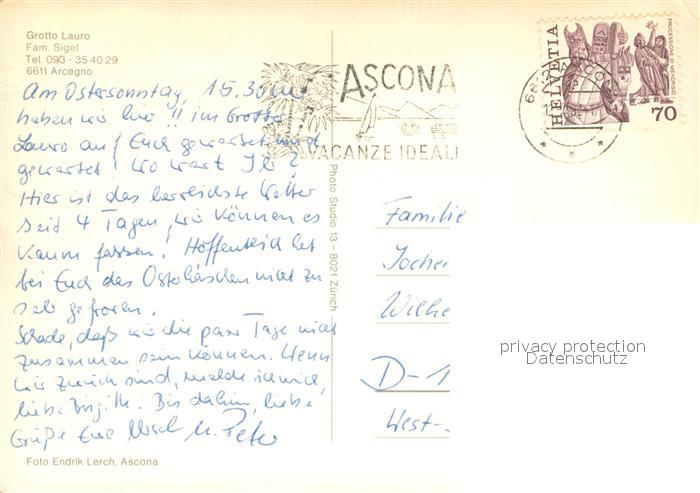 Grotto Lauro
Fam. Sigel
Tel. 093 - 35 40 29
6611 Arcegno
Am Ostersonntag, 15.30
haben wir hier !! im Grotto
Lauro auf Euch gewartet und
gewartet! Wo wart Ihr?
Hier ist das herrlichste Wetter
seit 4 Tagen, wir können es
kaum fassen! Hoffentlich hat
bei Euch das Osterhäschen nicht zu
sehr gefroren.
Schade, daß wir die paar Tage nicht
zusammen sein können. Wenn
wir zurück sind, melde ich mich,
liebe Brigitte. Bis dahin, liebe
Grüße Eure Ursel u. Peter
Foto Endrik Lerch, Ascona
Photo Studio 13 - 8021 Zürich
ASCONA
VACANZE IDEALI
HELVETIA
PROCESSIONI DI MENDRISIO
70
Familie
Jochen
Wilhe
D-1
West-
privacy protection
Datenschutz